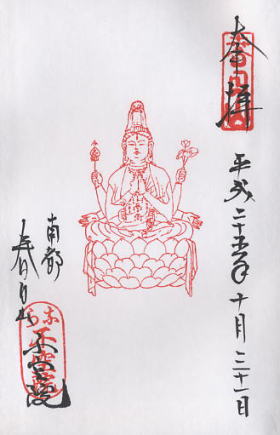 奉拝
平成二十五年十月三十一日
南都
春日山
不空院